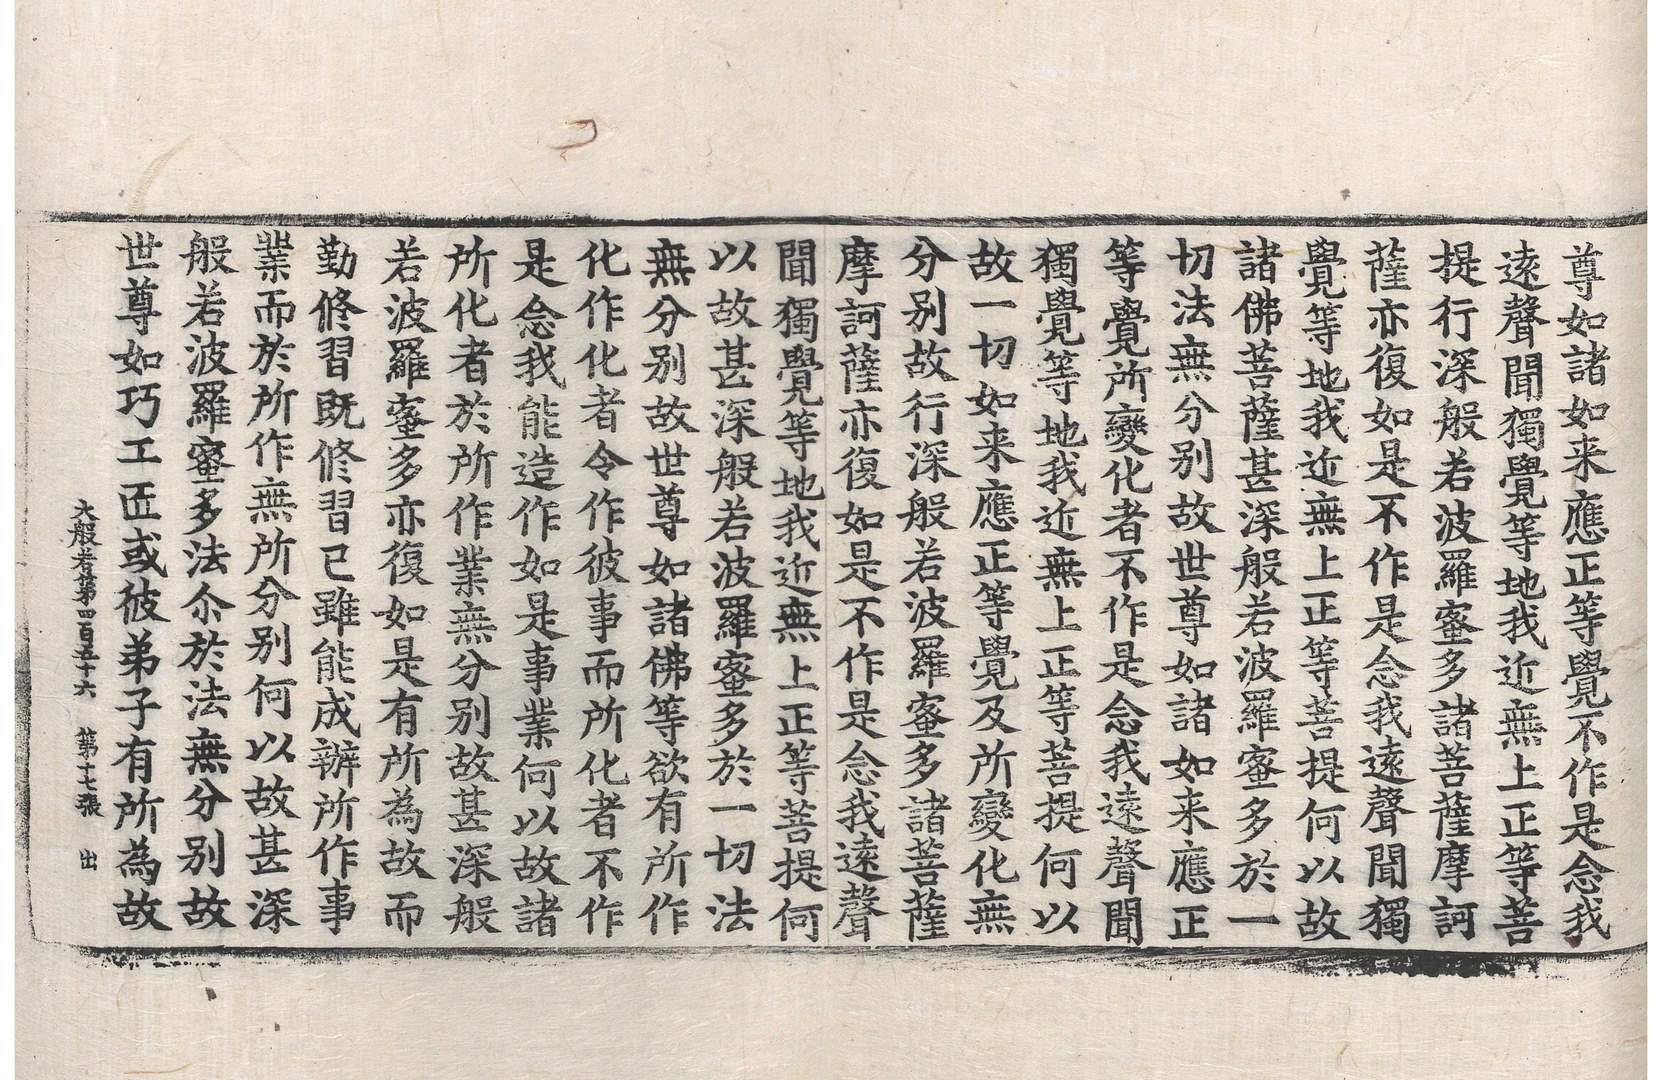 尊如諸如来應正等覺不作是念我
遠聲聞獨覺等地我近無上正等菩
提行深般若波羅蜜多諸菩薩摩訶
薩亦復如是不作是念我遠聲聞獨
覺等地我近無上正等菩提何以故
諸佛菩薩甚深般若波羅蜜多於一
切法無分别故世尊如諸如来應正
等覺所變化者不作是念我遠聲聞
獨覺等地我近無上正等菩提何以
故一切如来應正等覺及所變化無
分别故行深般若波羅蜜多諸菩薩
摩訶薩亦復如是不作是念我遠聲
聞獨覺等地我近無上正等菩提何
以故甚深般若波羅蜜多於一切法
無分别故世尊如諸佛等欲有所作
化作化者令作彼事而所化者不作
是念我能造作如是事業何以故諸
所化者於所作業無分别故甚深般
若波羅蜜多亦復如是有所為故而
勤修習既修習已雖能成辦所作事
業而於所作無所分别何以故甚深
般若波羅蜜多法尒於法無分别故
世尊如巧工匠或彼弟子有所為故
大般若第四百五十六 第十七張 出